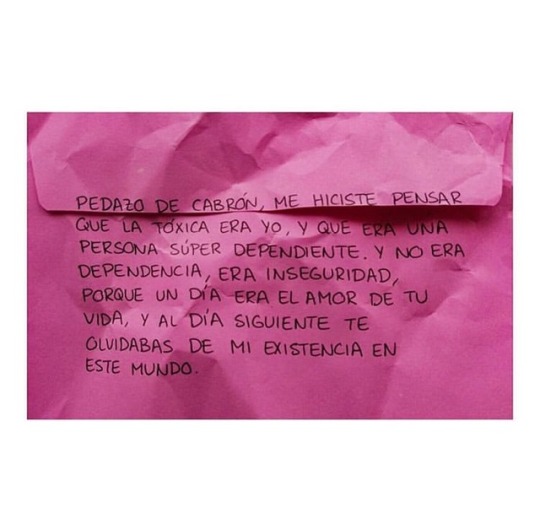 PEDAZO DE CABRÓN, ME HICISTE PENSAR
QUE LA TÓXICA ERA YO, Y QUE ERA UNA
PERSONA SÚPER DEPENDIENTE. Y NO ERA
DEPENDENCIA, ERA INSEGURIDAD,
PORQUE UN DÍA ERA EL AMOR DE TU
VIDA, Y AL DÍA SIGUIENTE TE
OLVIDABAS DE MI EXISTENCIA EN
ESTE MUNDO.